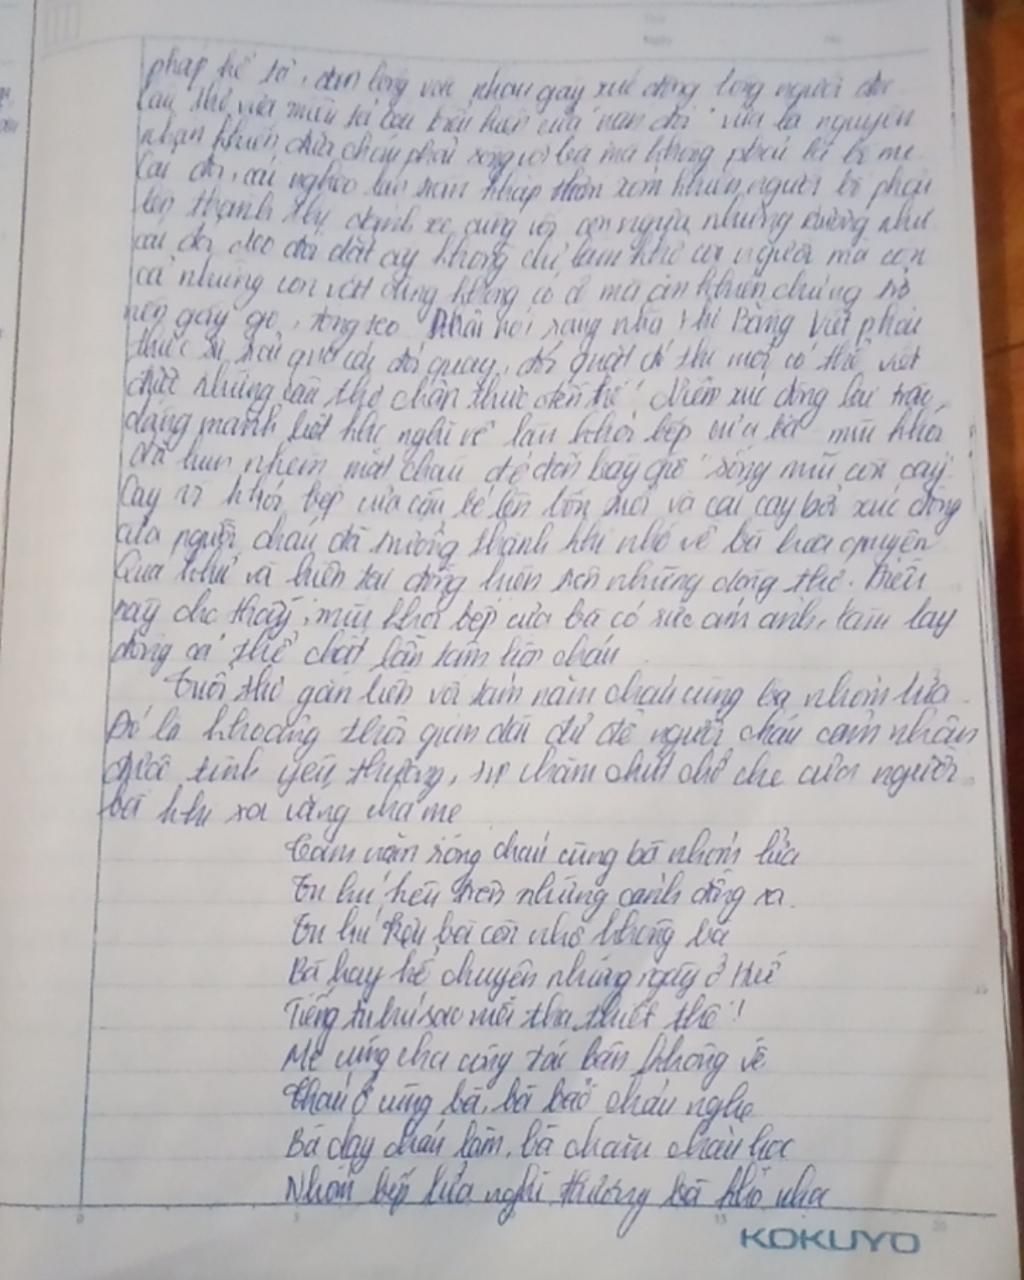 pháp kể tả, đan lồng vào nhau gây xúc động lòng người đọc
Câu thơ vừa miêu tả cái biểu hiện của nạn đói vừa là nguyên
nhân khiến đứa cháu phải sống với bà mà không phải là bố mẹ.
Cái đói, cái nghèo lan tràn khắp thôn xóm khiến người bố phải
lên thành thị đánh xe cùng với con ngựa nhưng dường như
cái đói deo dai dắt ấy không chỉ làm khổ con người mà còn
cả những con vật cũng không có cỏ mà ăn khiến chúng trở
nên gầy gò, tong teo. Phải nói rằng nhà thơ Bằng Việt phải
thực sự trải qua cái đói quay, đói quắt đó thì mới có thể viết
được những câu thơ chân thực đến thế! Niềm xúc động lại trào
dâng mãnh liệt khi nghĩ về làn khói bếp của bà mùi khói
đã hun nhèm mắt cháu để đến bây giờ "sống mũi còn cay"
Cay vì khói bếp của cậu bé lên bốn tuổi và cái cay bởi xúc động
của người cháu đã trưởng thành khi nhớ về bà hòa quyện
Quá khứ và hiện tại đồng hiện trên những dòng thơ. Điều
này cho thấy, mùi khói bếp của bà có sức ám ảnh, lay
động cả thể chất lẫn tâm hồn cháu.
Tuổi thơ gắn liền với tám năm cháu cùng bà nhóm lửa.
Đó là khoảng thời gian dài đủ để người cháu cảm nhận
được tình yêu thương, sự chăm chút chở che của người
bà khi xa vắng cha mẹ
Tám năm ròng cháu cùng bà nhóm lửa
Tu hú kêu trên những cánh đồng xa.
Tu hú kêu bà còn nhớ không bà
Bà hay kể chuyện những ngày ở Huế
Tiếng tu hú sao mà tha thiết thế!
Mẹ cùng cha công tác bận không về
Cháu ở cùng bà, bà bảo cháu nghe
Bà dạy cháu làm, bà chăm cháu học
Nhóm bếp lửa nghĩ thương bà khó nhọc
KOKUYO